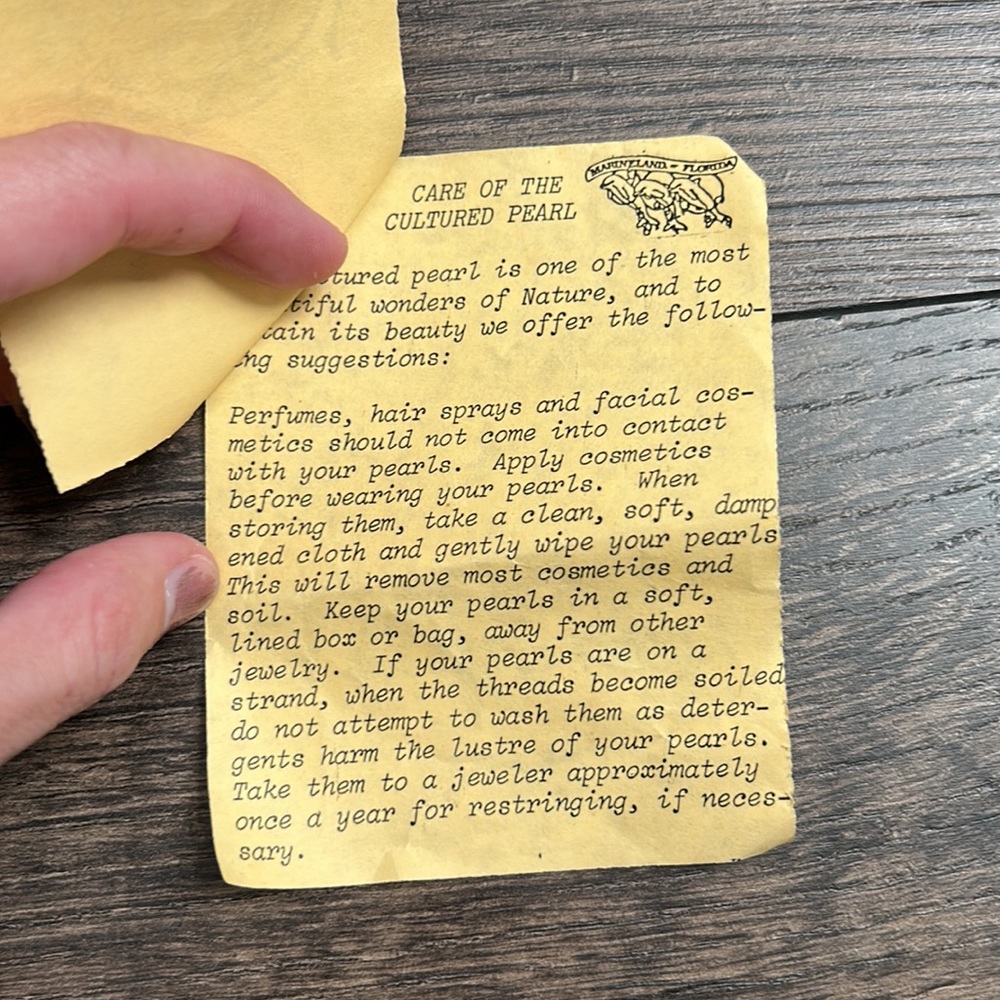 MARINELAND - FLORIDA
CARE OF THE
CULTURED PEARL
tured pearl is one of the most
tiful wonders of Nature, and to
tain its beauty we offer the follow-
ng suggestions:
Perfumes, hair sprays and facial cos-
metics should not come into contact
with your pearls. Apply cosmetics
before wearing your pearls. When
storing them, take a clean, soft, damp
ened cloth and gently wipe your pearls
This will remove most cosmetics and
soil. Keep your pearls in a soft,
lined box or bag, away from other
jewelry. If your pearls are on a
strand, when the threads become soiled
do not attempt to wash them as deter-
gents harm the lustre of your pearls.
Take them to a jeweler approximately
once a year for restringing, if neces-
sary.